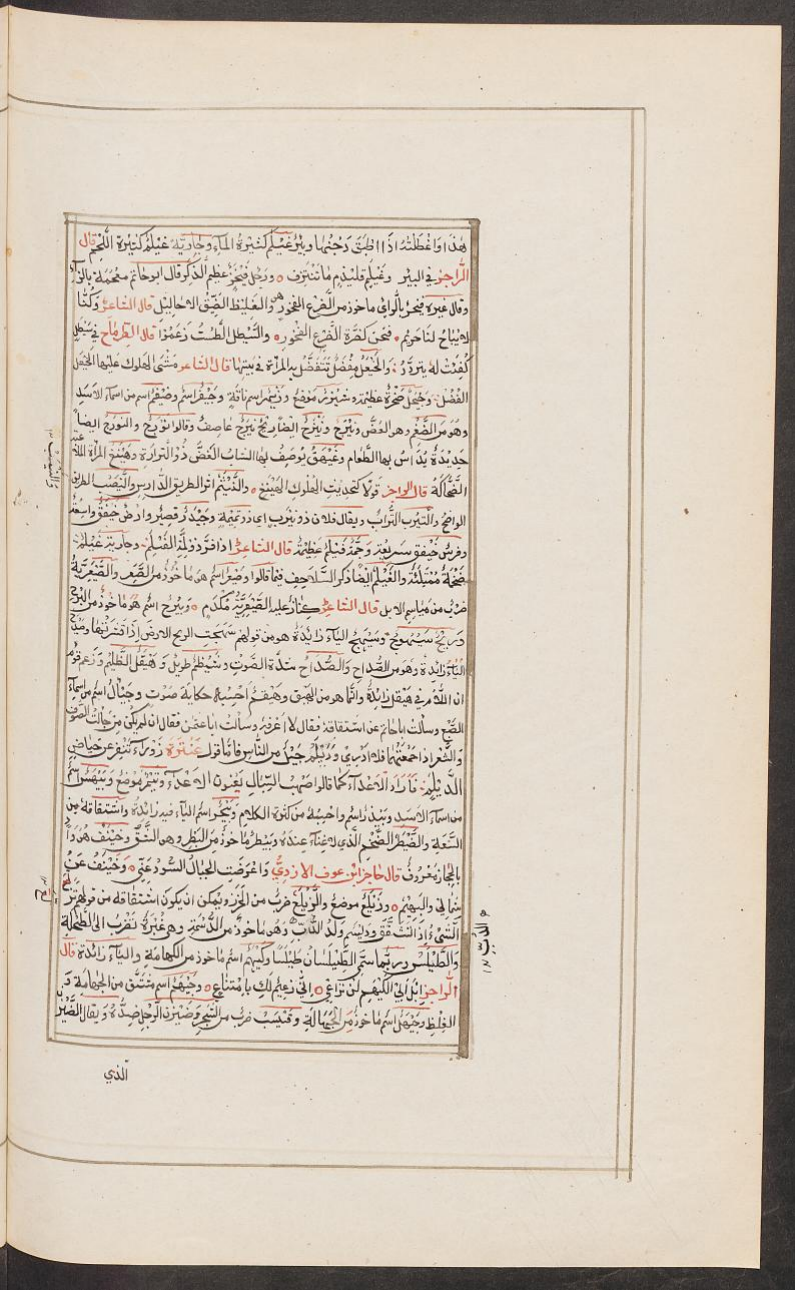 هذا واغطلته اذا اطبق دجنها وبئر غيلم كثيرة الماء وجارية غيلم كثيرة اللحم قال
الراجز في البير وغيلم قليذم ما تنتزف ورجل فيخز عظيم الذكر قال ابو حاتم معجمة بالزاي
وقال غيره فيخر بالراي ماخوذ من الضرع الفخور وهو الغليظ الضيق الاحاليل قال الشاعر وكنا
لا يباح لنا حريم فنحن كضرة الضرع الفخور والسيطل الطست زعموا قال الطرماح في سيطل
كفئت له يتردد والخيعل مفضل تتفضل به المراة في بيتها قال الشاعر مشي الهلوك عليها الخيعل
الفضل وجيهل صخرة عظيمة موضع وزيمر اسم ناقة وجيفر اسم وضيغم اسم من اسماء الاسد
وهو من الضغم وهو العض ونيرج ونيزج ايضا ريح نيرج عاصف وقالوا نورج والنورج ايضا
حديدة يداس بها الطعام وغيهق يوصف بها الشباب الغض ذو التوارة وهينغ المراة الملاعبة
الضحاكة قال الراجز قولا كتحديث الهلوك الهينغ والنيثم اثر الطريق الدارس والنيصب الطريق
الواضح والتيرب التراب ويقال فلان ذو نيرب اي ذو نميمة وجيدر قصير وارض خيفق واسعة
وفرس خيفق سريعة وجمة فيلم عظيمة قال الشاعر اذا فرق ذو اللمة الفيلم وجارية غيلم
ضخمة ممتلئة والغيلم ايضا ذكر السلاحف فيما قالوا وصيعر اسم هو ماخوذ من الصعر والصيعرية
ضرب من مياسم الابل قال الشاعر كناز عليه الصيعرية مكدم وبيرح اسم هو ماخوذ من البرح
وريح سيهوج وسيهج الياء زايدة هو من قولهم سهجت الريح الارض اذا قشرتها وصيدح
الياء زايدة وهو من الصداح والصداح شدة الصوت وشيظم طويل وهيقل الظليم وزعم قوم
ان اللام في هيقل زايدة وانما هو من الهيق وهيقم احسبه حكاية صوت وجيأل اسم من اسماء
الضبع وسالت ابا حاتم عن اشتقاقه فقال لا اعرفه وسالت ابا عثمن فقال ان لم يكن من جألت الصوف
والشعر اذا جمعتهما فلا ادري وديلم جيل من الناس فاما قول عنترة زوراء تنفر عن حياض
الديلم فاراد الاعداء كما قالوا صهب السبال يعنون الاعداء وتيم موضع وبيهس اسم
من اسماء الاسد وبيذر اسم واحسبه من كثرة الكلام ويجر اسم الياء فيه زايدة واشتقاقه من
السعة والضيطر الضخم الذي لا غناء عنده وبيطر ماخوذ من البطر وهو الشق وخينف هو واد
بالحجاز معروف قال حاجز ابن عوف الازدي واعرضت الجبال السود عني وخينف عن
شمالي والبهيم وذيلغ موضع والويلع ضرب من الخرز ويمكن ان يكون اشتقاقه من قولهم تزلع
الشي اذا تشقق وديسم ولد الذئب وهو ماخوذ من الدسمة وهي غبرة تقرب الى الطحلة
والطيلس وربما سمي الطيلسان طيلسا وكيهم اسم ماخوذ من الكهامة والياء زايدة قال
الراجز ابل ابي الكيهم لن تراعي اني زعيم لك بامتناع وجيهم اسم مشتق من الجهامة و
الغلظ وجيهل اسم ماخوذ من الجهالة وقيسب ضرب من الشجر وضيزن الرجل ضده ويقال الضيزن
الذي